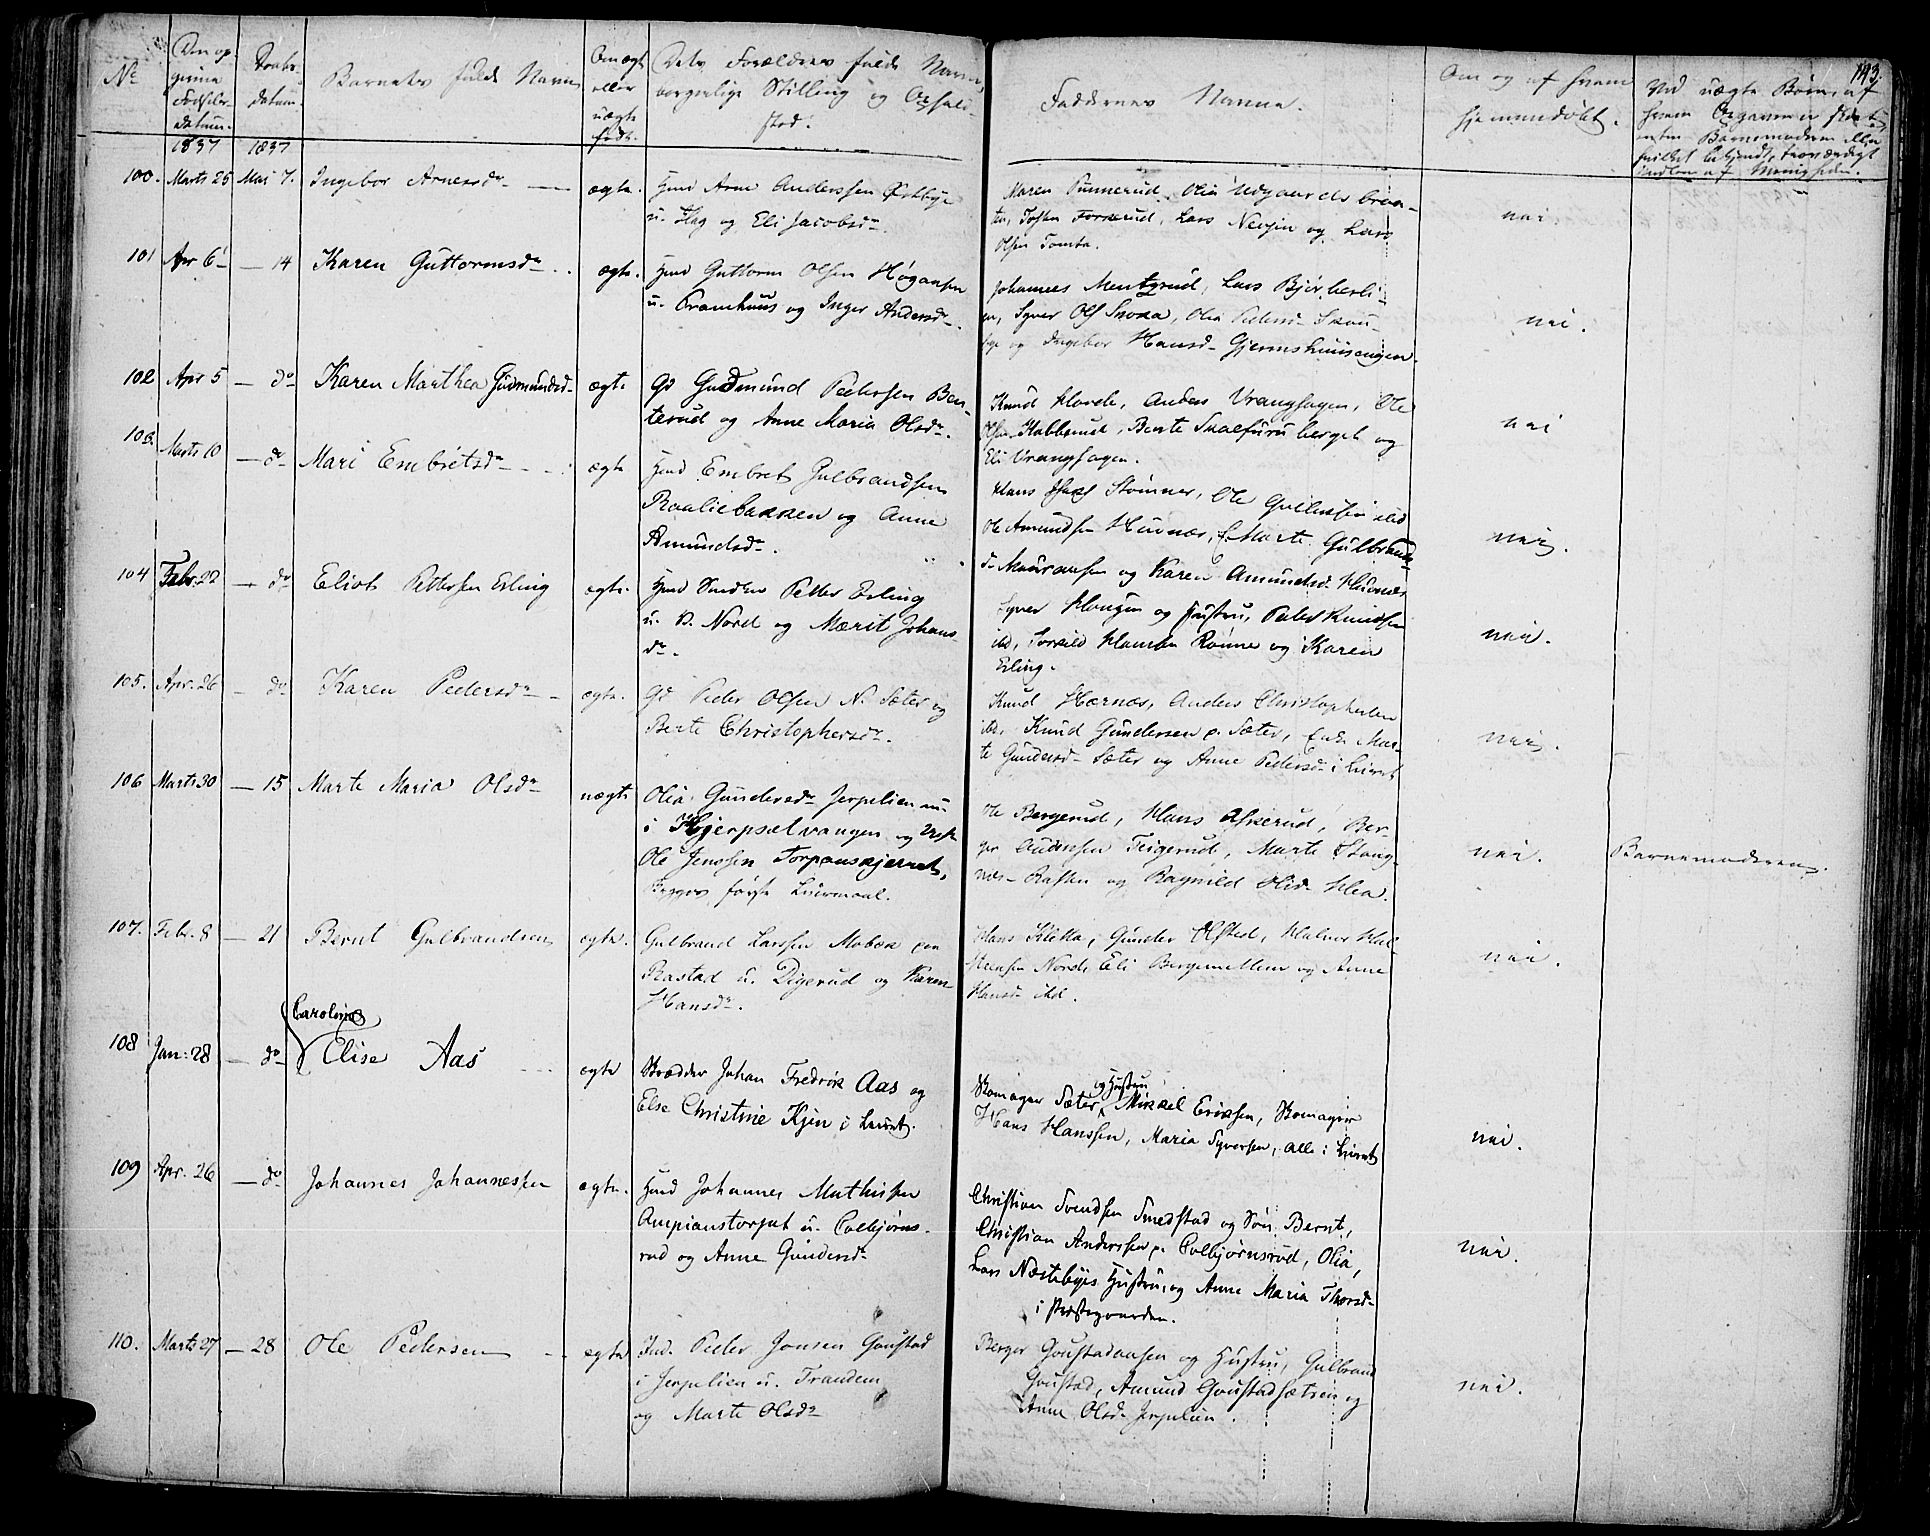 143.
No
Den op-
givne
Fødsels-
datum.
Daabs-
datum.
Barnets fulde Navn
Om ægte
eller
uægte
født.
Dets Forældres fulde Navne,
borgerlige Stilling og Opholds-
sted.
Faddernes Navne.
Om og af hvem
hjemmedøbt.
Ved uægte Børn, af
hvem Opgaven er skeet,
enten Barnemoderen eller
hvilket bekjendt, troværdigt
Medlem af Menigheden.
1837 1837
100. Marts 25 Mai 7. Ingebor Arnesdr ægte. Hmd Arne Anderssen Østbye
u. Hag og Eli Jacobsdr.
Maren Punnerud, Olia Udgaardsbraa-
ten, Lars og Lars
Olsen Tomta.
nei
101 Apr 6 — 14 Karen Guttormsdr ægte. Hmd Guttorm Olsen Høgaasen
u. Framhuus og Inger Andersdr.
Johannes Mentzrud, Lars Bjørberli-
en, Syver Ols Skoxa, Olia Pedersd
og Ingebor Hansd Gjermshuusengen.
nei.
102 Apr 5 — do Karen Marthea Gudmundsd ægte Gd Gudmund Pedersen Ben-
terud og Anne Maria Olsdr.
Knud Hovde, Anders Vranghagen, Ole
Olsen Kabberud, Berte Skaefuruberget og
Eli Vranghagen.
nei
103. Marts 10 — do Mari Embretsdr ægte Hmd Embret Gulbrandsen
Raaliebakken og Anne
Amundsdr.
Hans Stømner, Ole
Ole Amundsen Huvnæs, E. Marte Gulbrands-
d og Karen Amundsd Huvnæs
nei.
104 Febr: 22 — do Eliot Pettersen Erling ægte. Hmd Petter Erling
u. P. Nord og Marit Johans-
dr.
Syver Haugen og Hustru, Peder Knudsen
ibd, Torkild Hansen Rønne og Karen
Erling.
nei.
105. Apr. 26 — do Karen Pedersdr ægte. Gd Peder Olsen N. Sæter og
Berte Christophersdr.
Knud Hærnæs, Anders Christophersen
ibd. Knud Gundersen p. Sæter, Enke Mar-
te Gundersd Sæter og Anne Pedersdr i Leiret
nei.
106 Marts 30 — 15 Marte Maria Olsdr uægte Olia Gundersdr Jerpelien nu
i Hjerpsætvangen og
Ole Jenssen Torpanskjernet,
Begges første Leiermaal.
Ole Bergerud, Hans Askerud, Ber-
ger Audensen Teigerud, Marte Stang-
næs-Rasten og Ragnild Olsd Hka.
nei. Barnemoderen.
107. Febr. 8 — 21 Bernt Gulbrandsen ægte. Gulbrand Larssen Mobæk paa
Rastad u. Digerud og Karen
Hansdr.
Hans Kletta, Gunder Ofsted, Halvor Hal-
steensen Nord, Eli Bergemellem og Anne
Hansd ibd.
nei.
108 Jan: 28 — do Carolina
Elise Aas ægte Skrædder Johan Fredrik Aas og
Else Christine Kjen i Leiret.
Skomager Sæter og Hustru, Mikkel Eriksen, Skomager
Hans Hanssen, Maria Syversen, alle i Leiret
nei.
109 Apr. 26 — do Johannes Johannessen ægte. Hmd Johannes Mathissen
Ampianstorpet u. Colbjørns-
rud og Anne Gundersd
Christian Svendsen Smedstad og Søn Bernt,
Christian Anderssen p. Colbjørnsrud, Olia,
Lars Næstebyes Hustru, og Anne Maria Thorsd
i Præstegaarden.
nei.
110. Marts 27 — 28 Ole Pedersen ægte Ind. Peder Jonsen Goustad
i Jerpelien u. Frandem
og Marte Olsdr
Berger Goustadaasen og Hustru, Gulbrand
Goustad, Amund Goustadsætren og
Anne Olsd Jerpelien.
nei.